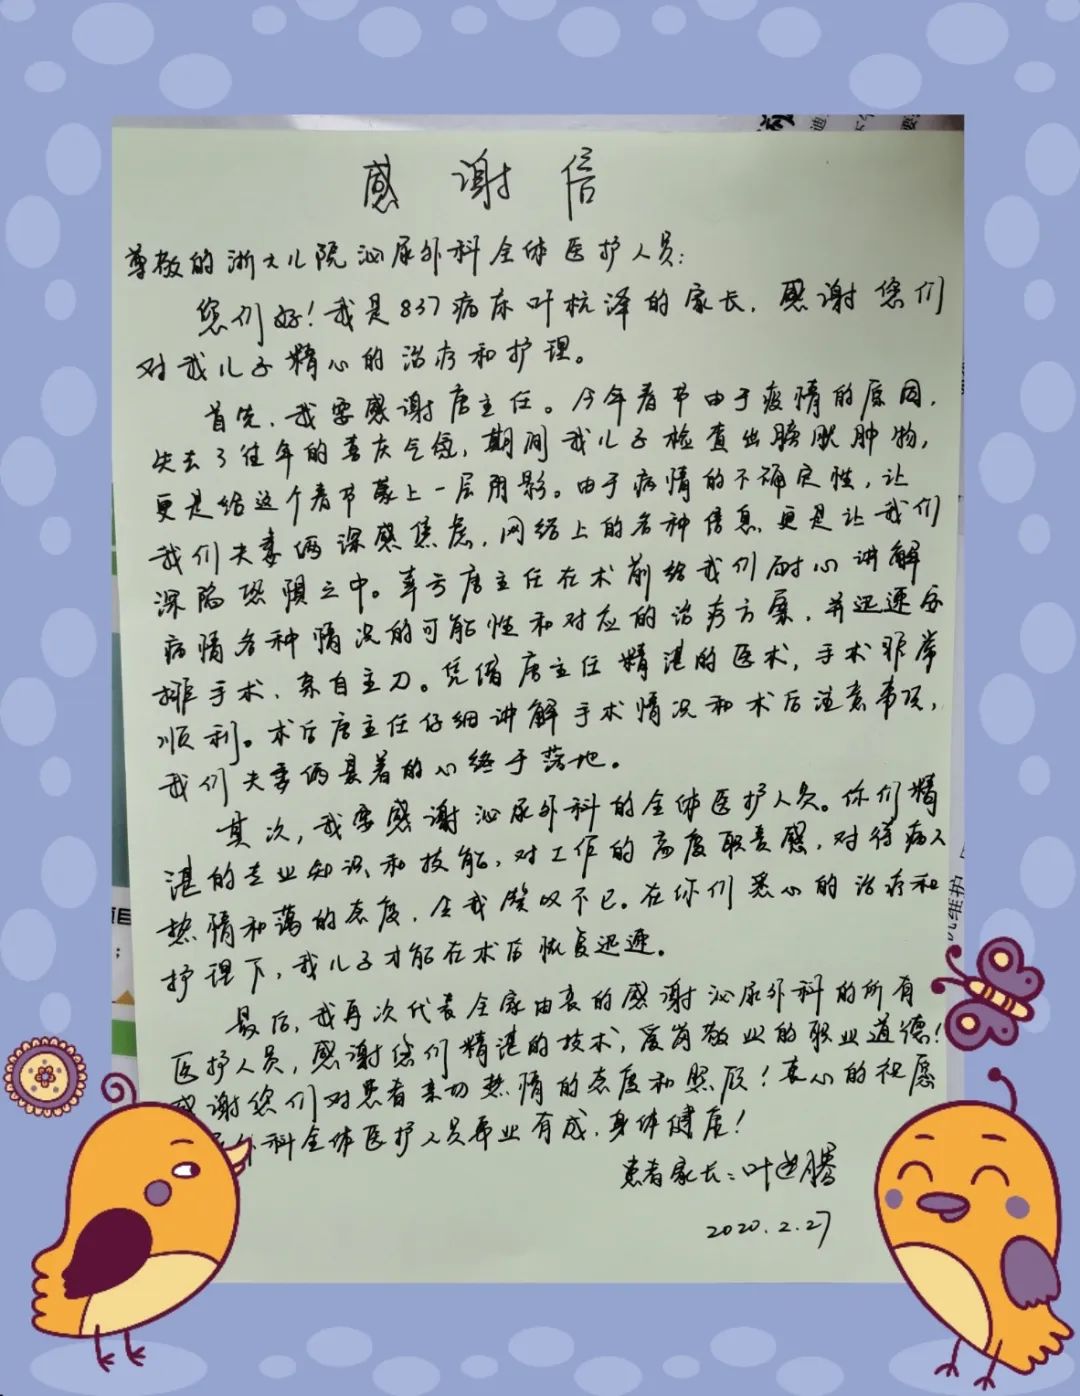 感谢信
尊敬的浙大儿院泌尿外科全体医护人员:
您们好!我是837病床叶杭泽的家长,感谢您们
对我儿子精心的治疗和护理。
首先,我要感谢唐主任。今年春节由于疫情的原因,
失去了往年的喜庆气氛,期间我儿子检查出膀胱肿物,
更是给这个春节蒙上一层阴影。由于病情的不确定性,让
我们夫妻俩深感焦虑,网络上的各种信息,更是让我们
深陷恐惧之中。幸亏唐主任在术前给我们耐心讲解
病情各种情况的可能性和对应的治疗方案,并迅速安
排手术、亲自主刀。凭借唐主任精湛的医术,手术非常
顺利。术后唐主任仔细讲解手术情况和术后注意事项,
我们夫妻俩悬着的心终于落地。
其次,我要感谢泌尿外科的全体医护人员。你们精
湛的专业知识和技能,对工作的高度职责感,对待病人
热情和蔼的态度,令我赞叹不已。在你们悉心的治疗和
护理下,我儿子才能在术后恢复迅速。
最后,我再次代表全家由衷的感谢泌尿外科的所有
医护人员,感谢您们精湛的技术,爱岗敬业的职业道德!
感谢您们对患者亲切热情的态度和照顾!衷心的祝愿
外科全体医护人员事业有成,身体健康!
患者家长:叶进腾
2020.2.27
迪
要
维护